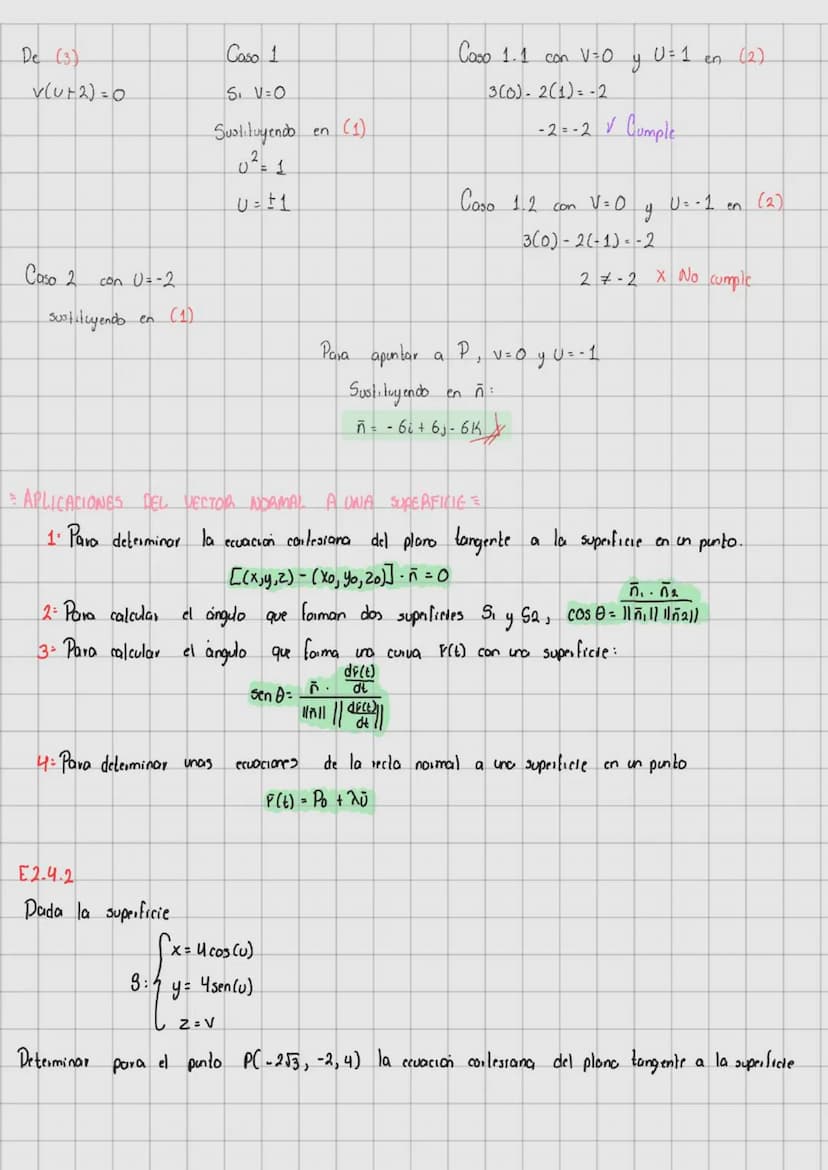 De (3)
v(u+2)=0
Caso 1
Si V=0
Sustituyendo en (1)
u²=1
u=±1
Caso 1.1 con V=0 y U=1 en (2)
3(0)-2(1)=-2
-2=-2 √ Cumple
Caso 1.2 con V=0 y U=-1 en (2)
3(0)-2(-1)=-2
2≠-2 x No cumple
Caso 2 con U=-2
sustituyendo en (1)
Para apuntar a P, v=0 y u=-1
Sustituyendo en n̄:
n̄ = -6i + 6j - 6k
= APLICACIONES DEL VECTOR NORMAL A UNA SUPERFICIE =
1: Para determinar la ecuación cartesiana del plano tangente a la superficie en un punto.
[(x,y,z)-(x0,y0,z0)]·n̄=0
2: Para calcular el ángulo que forman dos superficies S1 y S2, cos θ = n̄1·n̄2 / ||n̄1|| ||n̄2||
3: Para calcular el ángulo que forma una curva r̄(t) con una superficie:
sen θ = n̄ · dr̄(t)/dt / ||n̄|| ||dr̄(t)/dt||
4: Para determinar unas ecuaciones de la recta normal a una superficie en un punto
r̄(t) = P0 + λū
E2.4.2
Dada la superficie
S: { x = 4cos(u)
y = 4sen(u)
z = v
Determinar para el punto P(-2√3, -2, 4) la ecuación cartesiana del plano tangente a la superficie